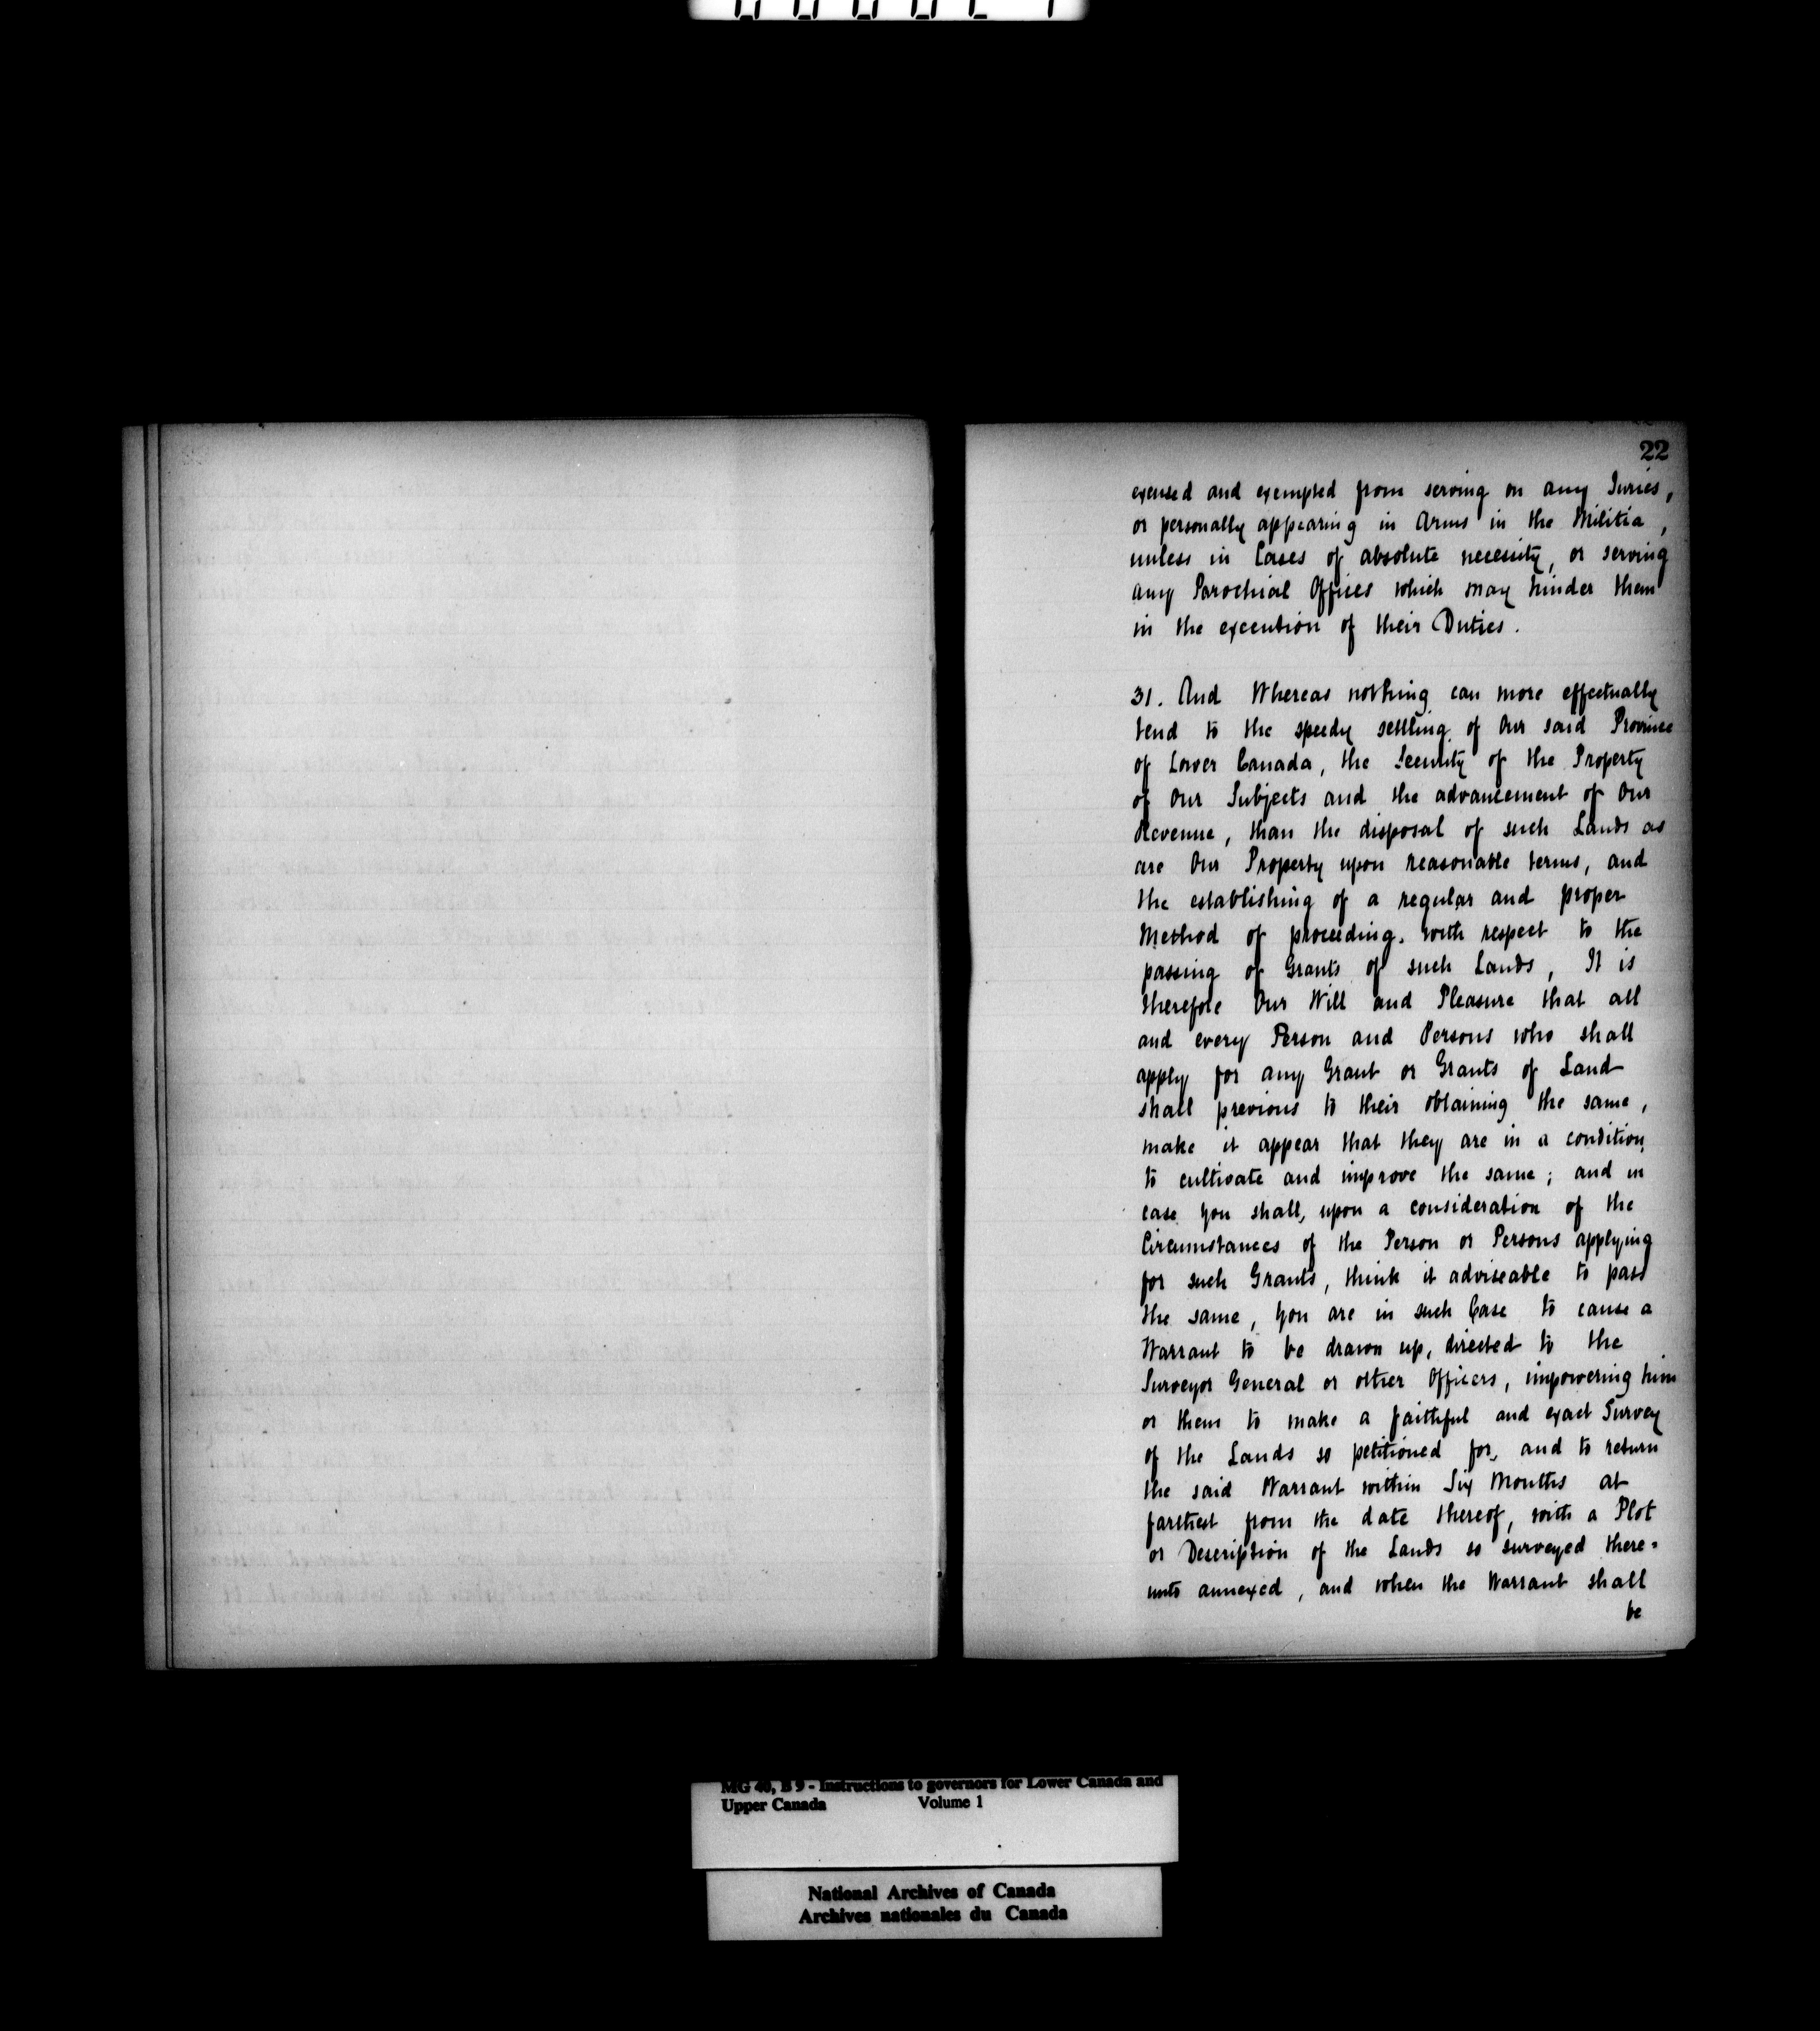 22
excused and exempted from serving on any Juries,
or personally appearing in Arms in the Militia,
unless in Cases of absolute necessity, or serving
any Parochial Offices which may hinder them
in the execution of their Duties.
31. And Whereas nothing can more effectually
tend to the speedy settling of Our said Province
of Lower Canada, the Security of the Property
of Our Subjects and the advancement of Our
Revenue, than the disposal of such Lands as
are Our Property upon reasonable terms, and
the establishing of a regular and proper
Method of proceeding. with respect to the
passing of Grants of such Lands, It is
therefore Our Will and Pleasure that all
and every Person and Persons who shall
apply for any Grant or Grants of Land
shall previous to their obtaining the same,
make it appear that they are in a condition
to cultivate and improve the same; and in
case you shall, upon a consideration of the
Circumstances of the Person or Persons applying
for such Grants, think it adviseable to pass
the same, you are in such Case to cause a
Warrant to be drawn up, directed to the
Surveyor General or other Officers, impowering him
or them to make a faithful and exact Survey
of the Lands so petitioned for, and to return
the said Warrant within Six Months at
farthest from the date thereof, with a Plot
or Description of the Lands so surveyed there=
unto annexed, and when the Warrant shall
be
MG 40, B 9 - Instructions to governors for Lower Canada and
Upper Canada Volume 1
National Archives of Canada
Archives nationales du Canada